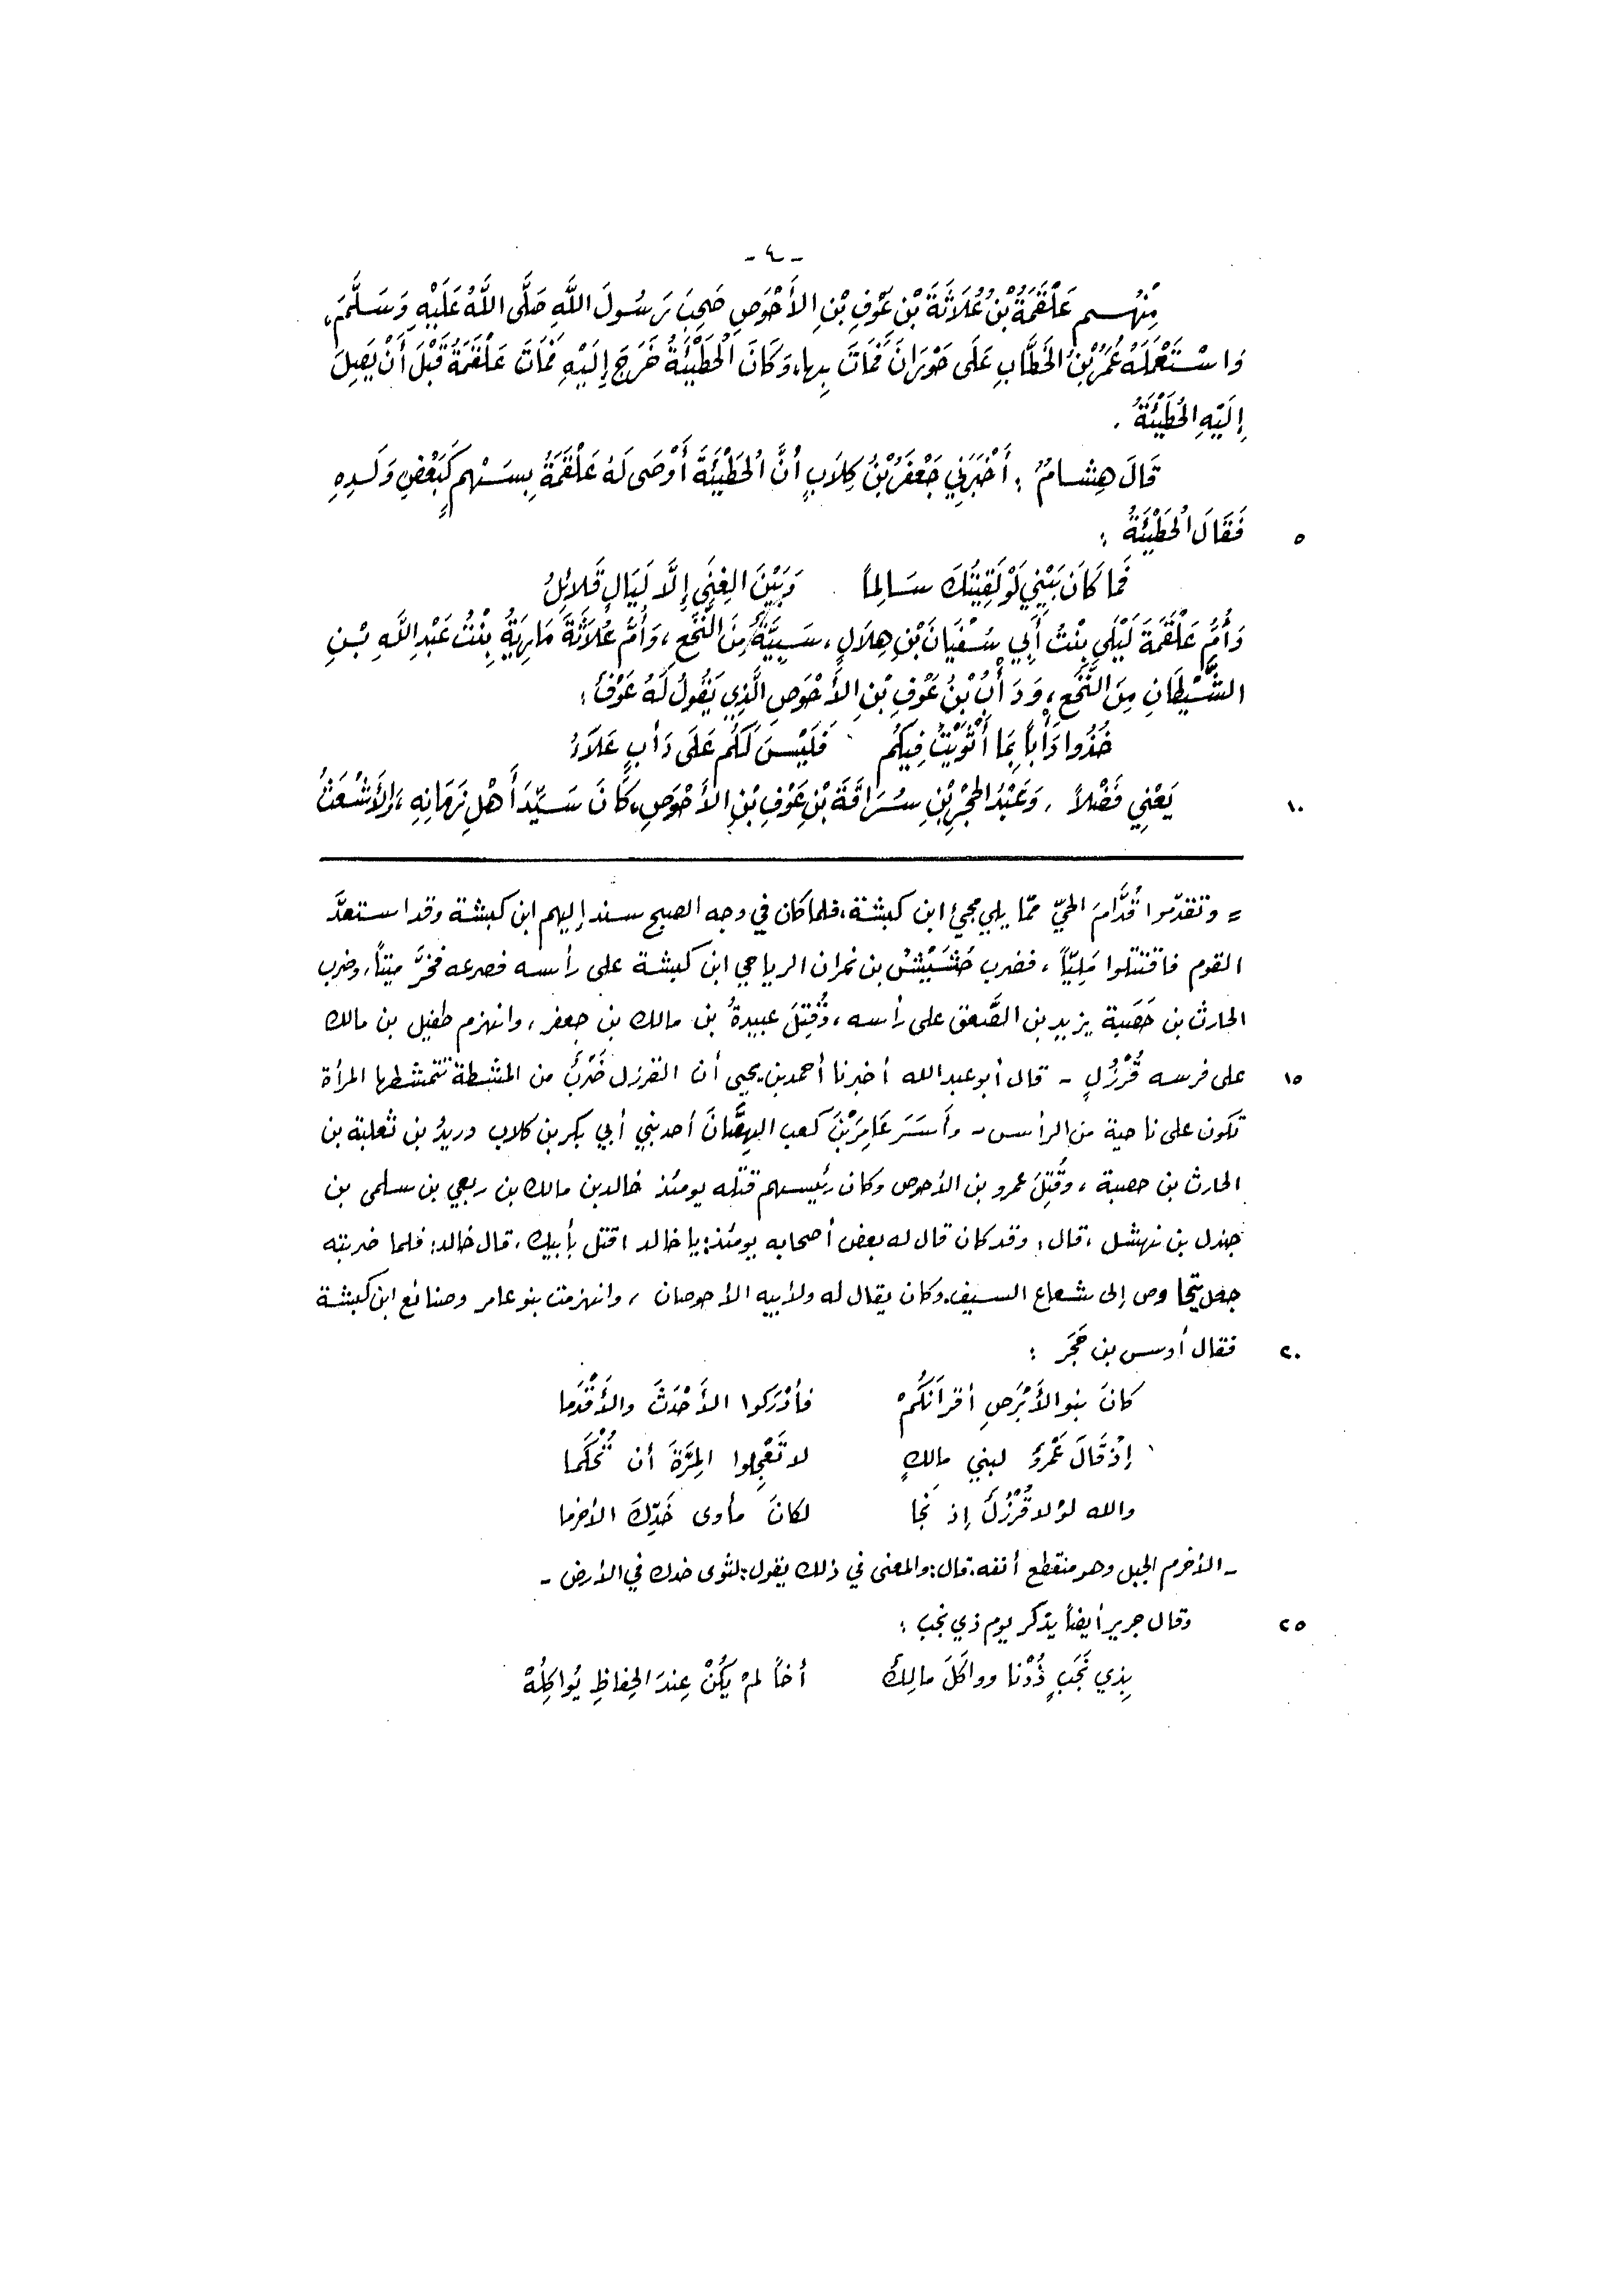 - ٤ -
مِنْهُم عَلْقَمَةُ بْنُ عُلَاثَةَ بْنِ عَوْفِ بْنِ الأَحْوَصِ صَحِبَ رَسُولَ اللَّهِ صَلَّى اللَّهُ عَلَيْهِ وَسَلَّمَ،
وَاسْتَعْمَلَهُ عُمَرُ بْنُ الخَطَّابِ عَلَى حَوْرَانَ فَمَاتَ بِها، وَكَانَ الْحُطَيْئَةُ خَرَجَ إِلَيْهِ فَمَاتَ عَلْقَمَةُ قَبْلَ أَنْ يَصِلَ
إِلَيْهِ الحُطَيْئَةُ .
قَالَ هِشَامٌ : أَخْبَرَنِي جَعْفَرُ بْنُ كِلَابٍ أنَّ الْحُطَيْئَةَ أَوْصَى لَهُ عَلْقَمَةُ بِسَهْمٍ كَبَعْضِ وَلَدِهِ
٥ فَقَالَ الْحُطَيْئَةُ :
فَما كَانَ بَيْنِي لَوْ لَقِيتُكَ سَالِماً وَبَيْنَ الغِنَى إِلَّا لَيَالٍ قَلائِلُ
وَأُمُّ عَلْقَمَةَ لَيْلَى بِنْتُ أَبِي سُفْيَانَ بْنِ هِلَالٍ، سَبِيَّةٌ مِنَ النَّخَعِ، وَأُمُّ عُلَاثَةَ مَارِيَةُ بِنْتُ عَبْدِ اللَّهِ بْنِ
الشَّيْطَانِ مِنَ النَّخَعِ، وَدَأْبُ بْنُ عَوْفِ بْنِ الأَحْوَصِ الَّذِي يَقُولُ لَهُ عَوْفٌ :
خُذُوا دَأْباً بِمَا أَثْوَيْتُ فِيكُم فَلَيْسَ لَكُم عَلَى دَأْبٍ عَلَاءُ
١٠ يَعْنِي فَضْلاً ، وَعَبْدُ الحِجْرِ بْنِ سُرَاقَةَ بْنِ عَوْفِ بْنِ الأَحْوَصِ، كَانَ سَيِّدَ أَهْلِ زَمَانِهِ، وَالأَشْعَثُ
= وتقدّموا قُدَّامَ الحيّ ممّا يلي مجيئ ابن كبشة، فلما كان في وجه الصبح سند إليهم ابن كبشة وقد استعدَّ
القوم فاقتتلوا مَلِيّاً ، فضرب حُشَيْشُ بن نمران الرياحي ابن كبشة على رأسه فصرعه فخرَّ ميتاً، وضرب
الحارث بن حَصَبة يزيد بن الصَّعق على رأسه ، وقُتِلَ عبيدةُ بن مالك بن جعفر ، وانهزم طفيل بن مالك
١٥ على فرسه قُرْزُلٍ - قال أبو عبد الله أخبرنا أحمد بن يحيى أن القرزل ضَرْبٌ من المشطة تتمشطها المرأة
تكون على ناحية من الرأس - وأَسَرَ عَامِرَ بْنَ كعب الهِصَّانَ أحد بني أبي بكر بن كلاب دريدُ بن ثعلبة بن
الحارث بن حصبة ، وقُتِلَ عمرو بن الأحوص وكان رئيسهم قتله يومئذ خالد بن مالك بن ربعي بن سلمى بن
جندل بن نهشل ، قال : وقد كان قال له بعض أصحابه يومئذ : يا خالد اقتل بأبيك ، قال خالد : فلما ضربته
جعل يتحاوص إلى شعاع السيف، وكان يقال له ولأبيه الأحوصان ، وانهزمت بنو عامر وصنائع ابن كبشة
٢٠ فقال أوس بن حَجَر :
كانَ بنو الأَبْرَصِ أقرانَكُمْ فأدْرَكوا الأَحْدَثَ والأَقْدَما
إذْ قَالَ عَمْروٌ لبني مالكٍ لا تَعْجِلوا المِرَّةَ أن تُحْكَما
والله لوْلا قُرْزُلٌ إذ نَجا لكانَ مأوى خَدِّكَ الأخرما
- الأخرم الجبل وهو منقطع أنفه، قال: والمعنى في ذلك يقول: لثوى خدك في الأرض -
٢٥ وقال جرير أيضاً يذكر يوم ذي نجب :
بِذي نَجَبٍ ذُدْنا وواكَلَ مالِكٌ أخاً لمْ يَكُنْ عِندَ الحِفاظِ يُواكِلُهْ